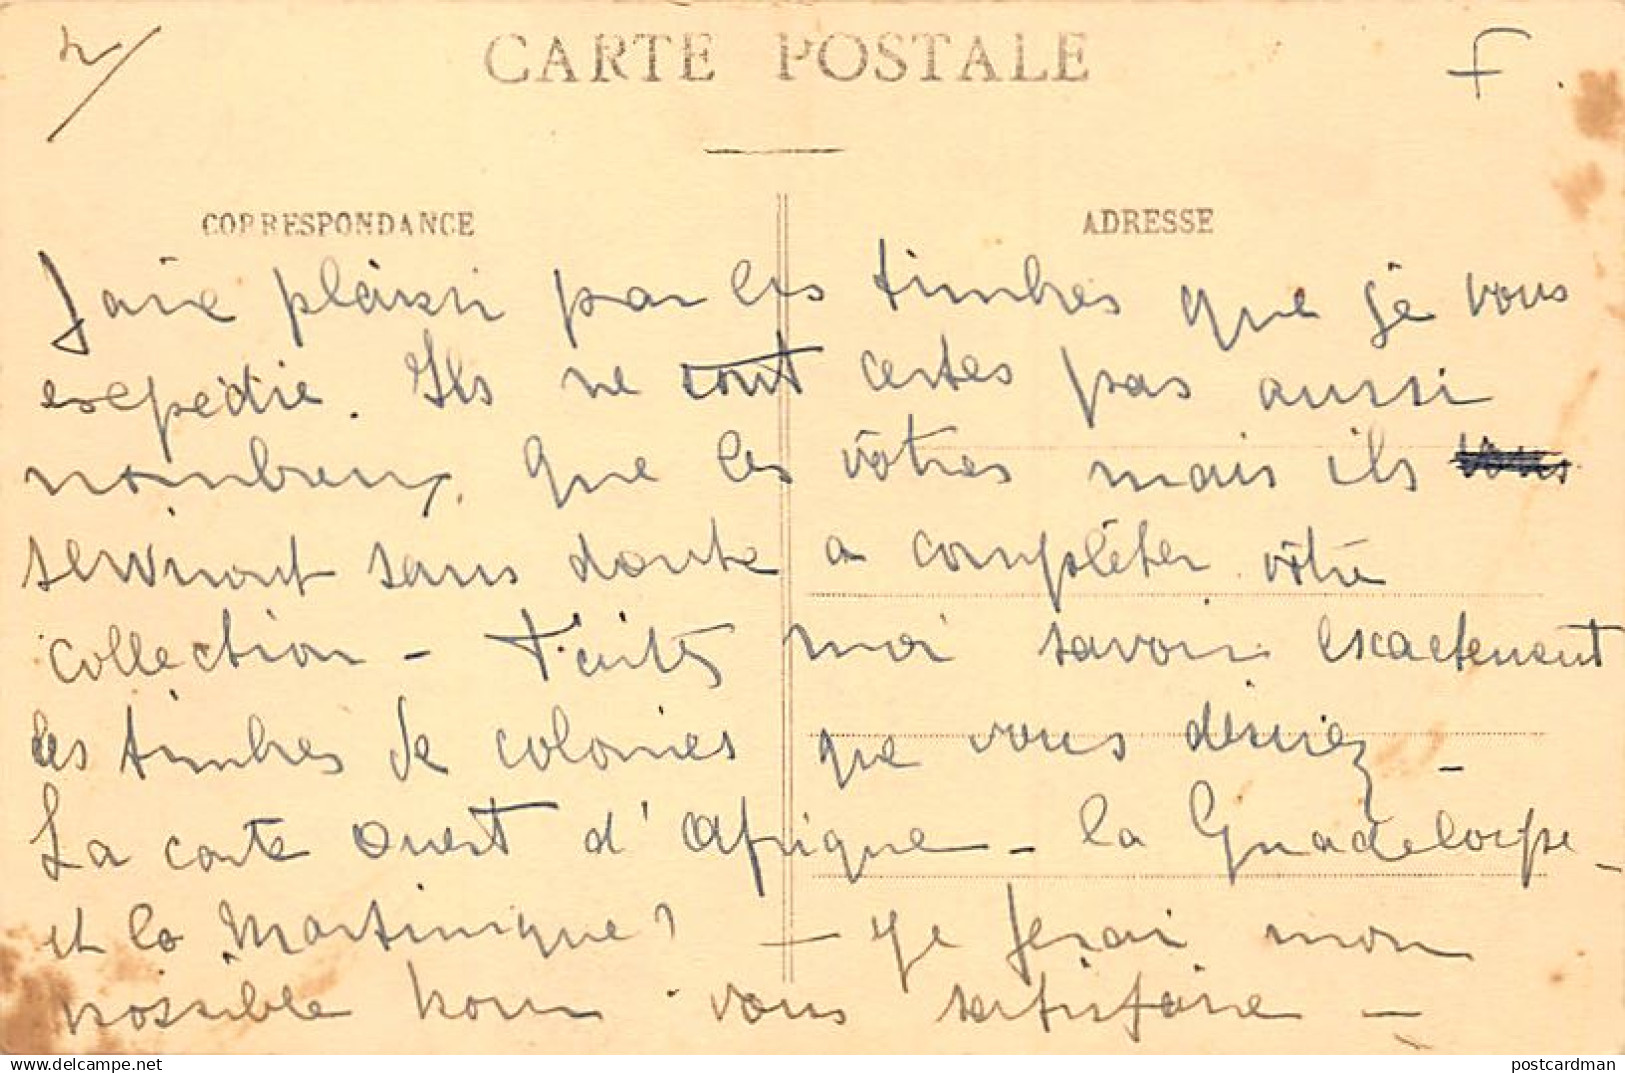 2/
CARTE POSTALE
F.
CORRESPONDANCE
ADRESSE
faire plaisir par les timbres que je vous
expédie. Ils ne sont certes pas aussi
nombreux que les vôtres mais ils vous
serviront sans doute a compléter vôtre
collection - Faites moi savoir exactement
les timbres de colonies que vous désirez -
La carte Ouest d'Afrique - la Guadeloupe -
et la Martinique ? - Je ferai mon
possible pour vous satisfaire -
delcampe.net
postcardman